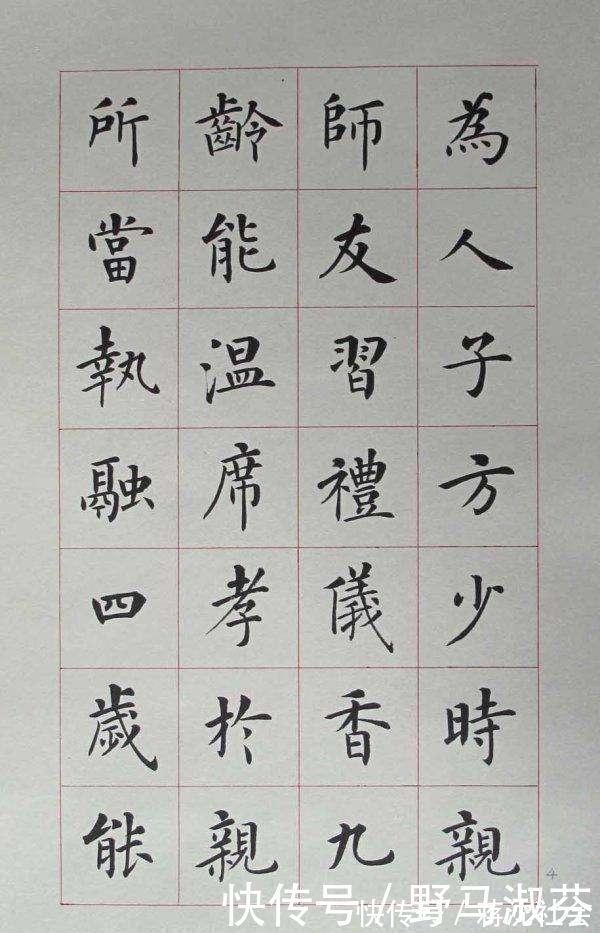 為人子方少時親
師友習禮儀香九
齡能溫席孝於親
所當執融四歲能
4
快传号／野马淑芬
快传号／